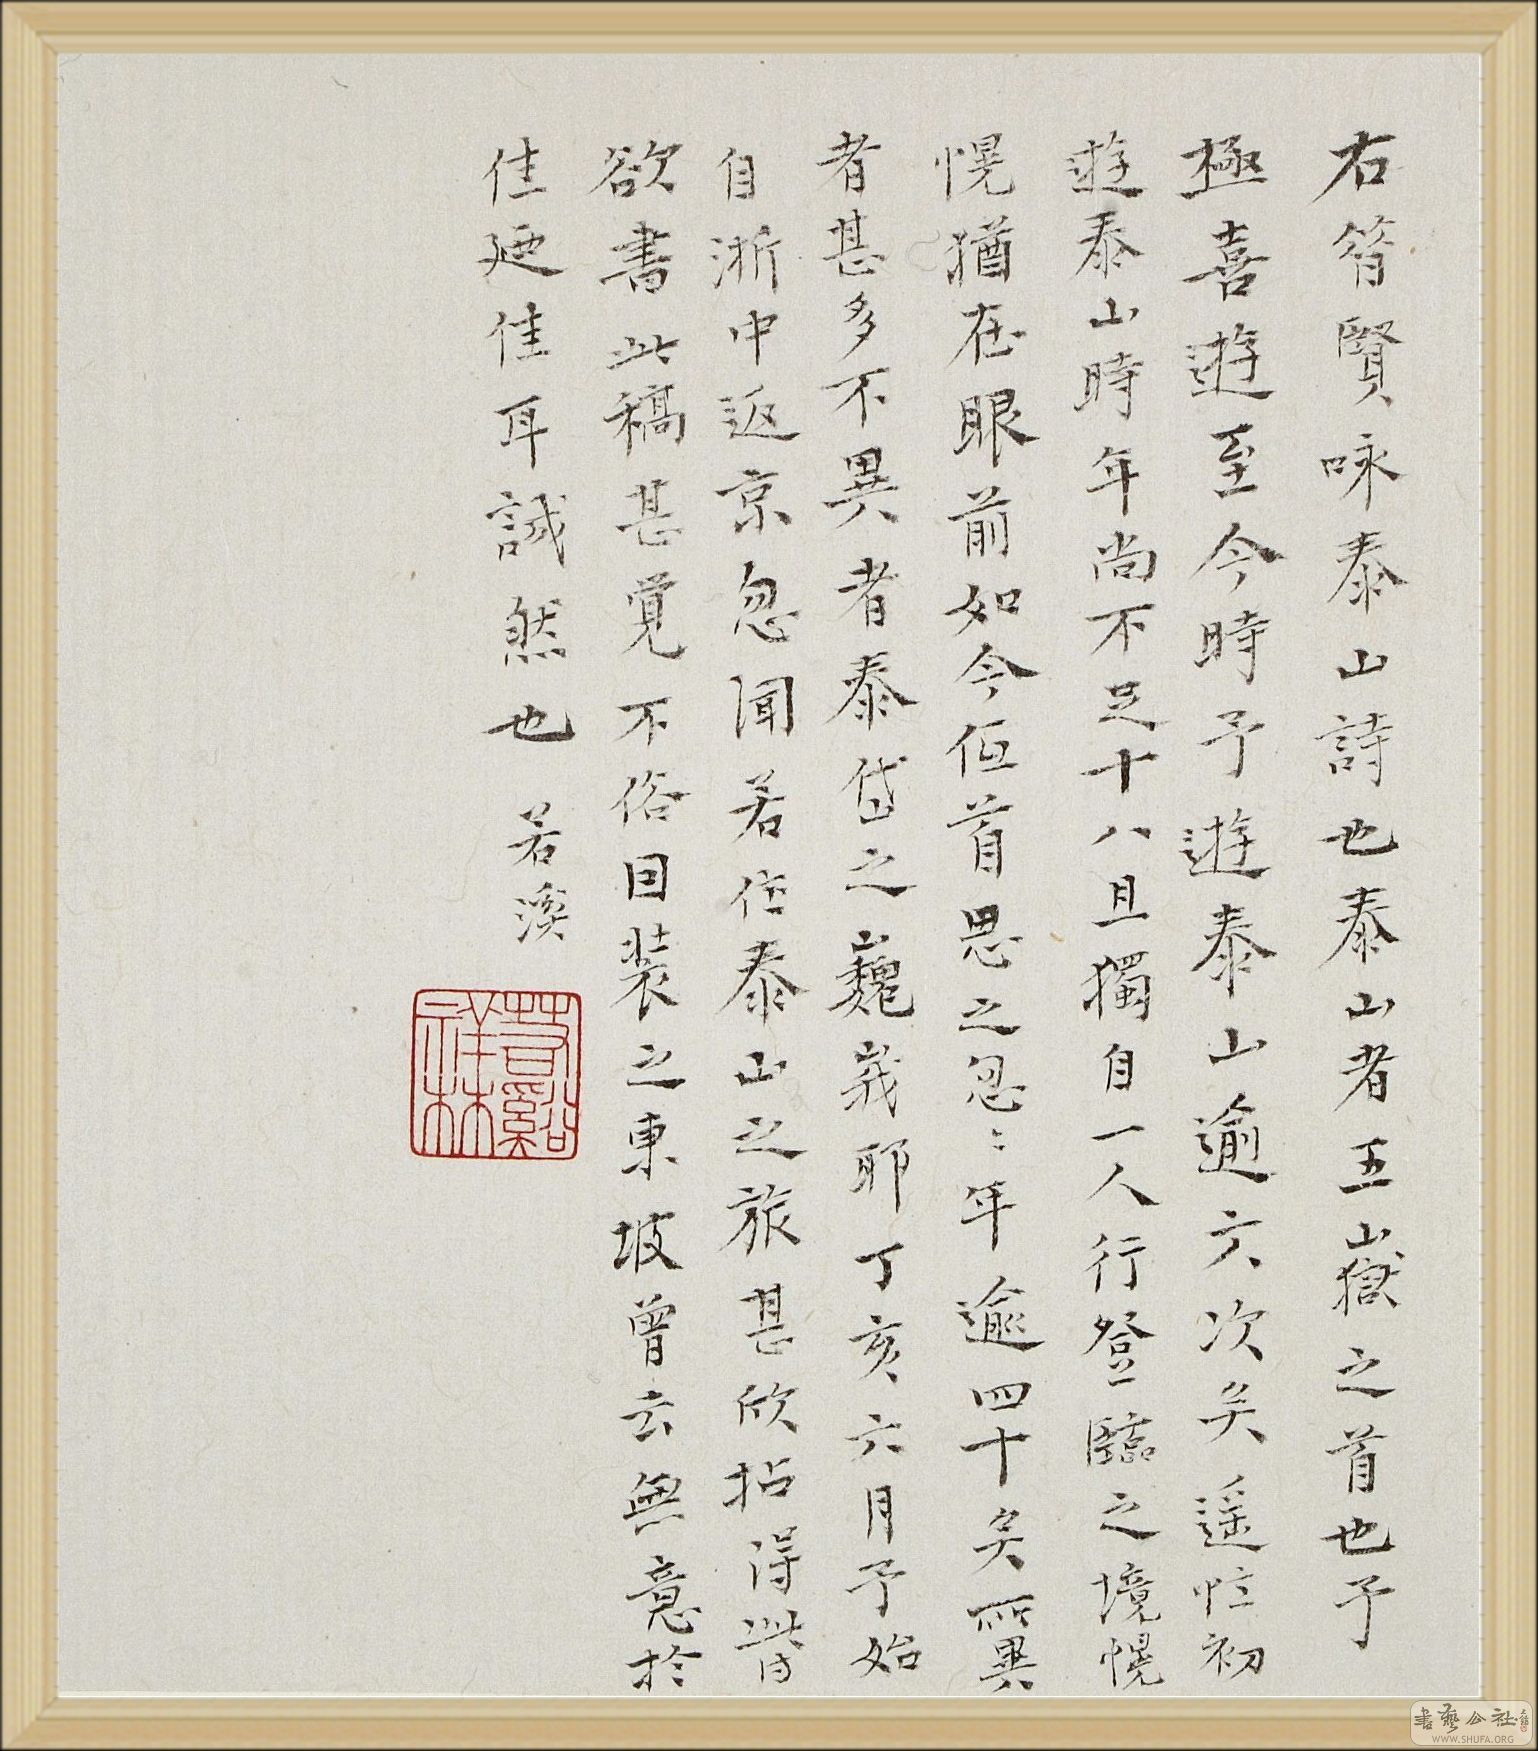 右昝賢咏泰山詩也泰山者五嶽之首也予
極喜遊至今時予遊泰山逾六次矣遥忆初
遊泰山時年尚不足十八且獨自一人行登臨之境幌
幌猶在眼前如今低首思之忽〻年逾四十矣所異
者甚多不異者泰岱之巍峩耶丁亥六月予始
自浙中返京忽闻若住泰山之旅甚欣拈得昔
欲書此稿甚覚不俗因装之東坡曾云無意於
佳廼佳耳誠然也 若溪
若谿
祥林
書藝公社
WWW.SHUFA.ORG